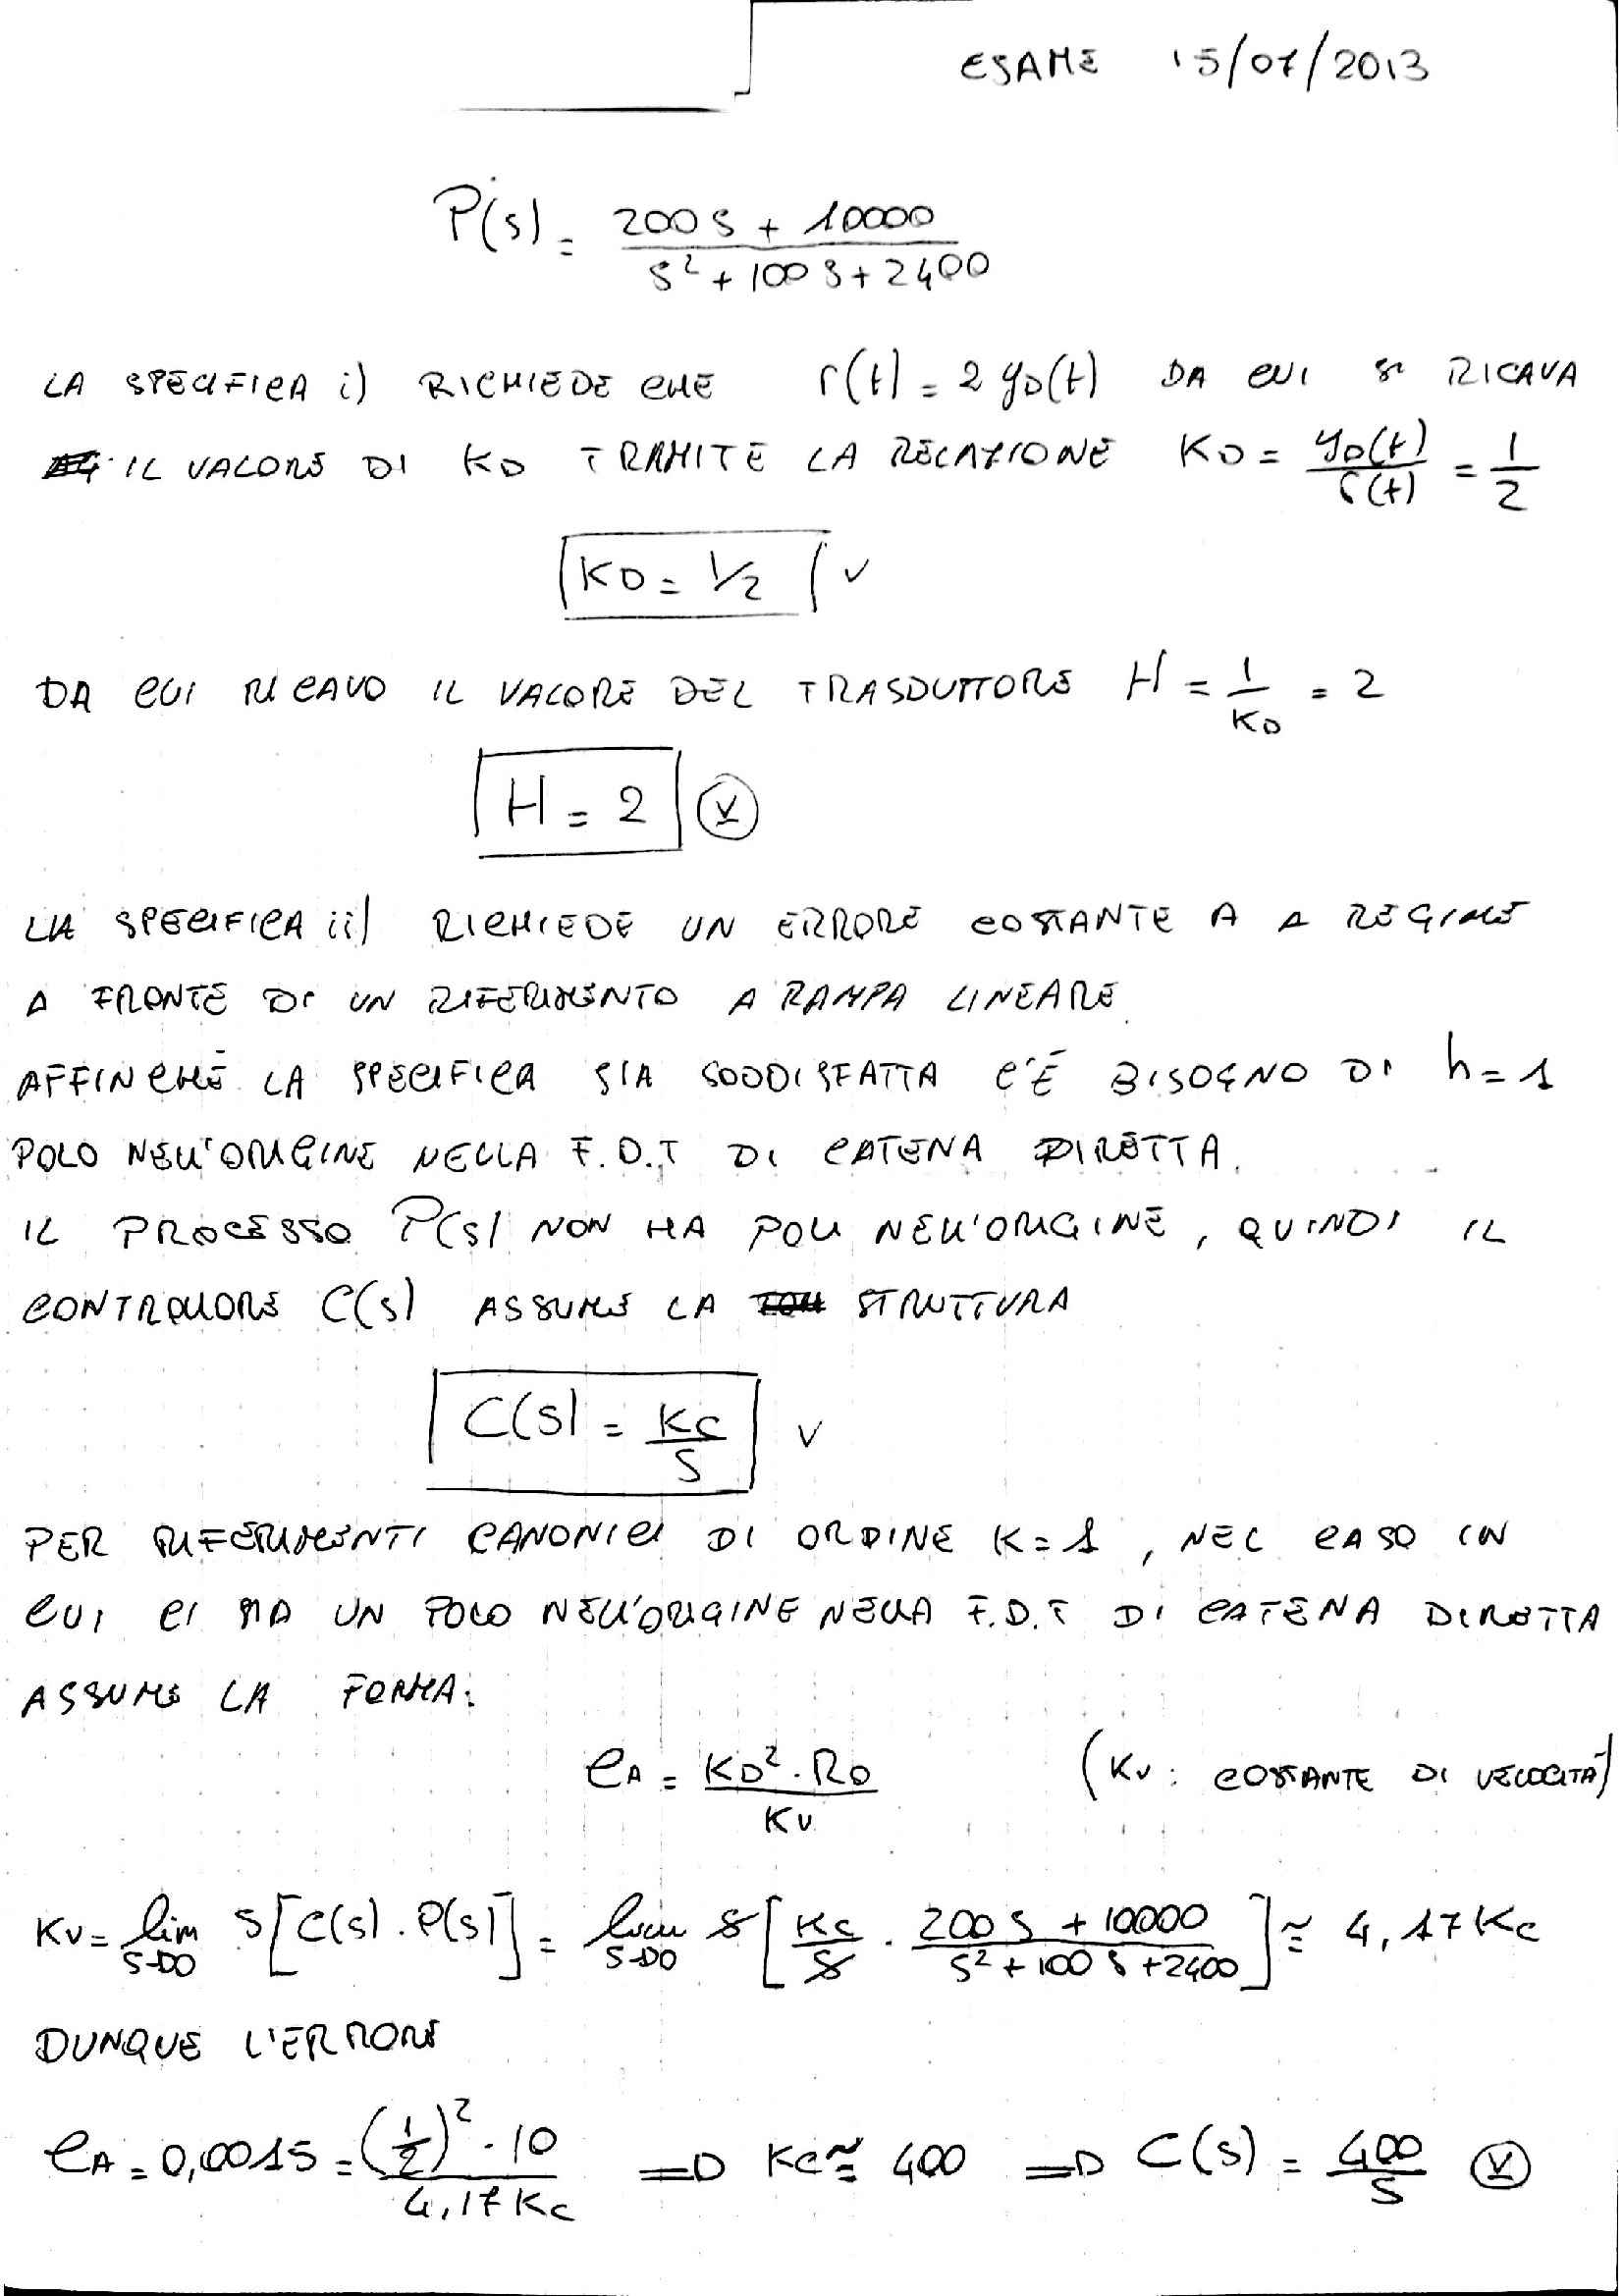 ESAME 15/07/2013
P(s) = (200s + 10000) / (s² + 100s + 2400)
LA SPECIFICA i) RICHIEDE CHE r(t) = 2 yD(t) DA CUI SI RICAVA
IL VALORE DI KD TRAMITE LA RELAZIONE KD = yD(t)/r(t) = 1/2
KD = 1/2 v
DA CUI RICAVO IL VALORE DEL TRASDUTTORE H = 1/KD = 2
H = 2 v
LA SPECIFICA ii) RICHIEDE UN ERRORE COSTANTE A A REGIME
A FRONTE DI UN RIFERIMENTO A RAMPA LINEARE.
AFFINCHÈ LA SPECIFICA SIA SODDISFATTA C'È BISOGNO DI h=1
POLO NELL'ORIGINE NELLA F.D.T DI CATENA DIRETTA.
IL PROCESSO P(s) NON HA POLI NELL'ORIGINE, QUINDI IL
CONTROLLORE C(s) ASSUME LA STRUTTURA
C(s) = Kc/s v
PER RIFERIMENTI CANONICI DI ORDINE K=1, NEL CASO IN
CUI CI SIA UN POLO NELL'ORIGINE NELLA F.D.T DI CATENA DIRETTA
ASSUME LA FORMA:
eA = KD² · R0 / Kv (Kv: COSTANTE DI VELOCITÀ)
Kv = lim s→0 s[C(s) · P(s)] = lim s→0 s[Kc/s · (200s + 10000)/(s² + 100s + 2400)] ≅ 4,17 Kc
DUNQUE L'ERRORE
eA = 0,0015 = (1/2)² · 10 / 4,17 Kc => Kc ≅ 400 => C(s) = 400/s v